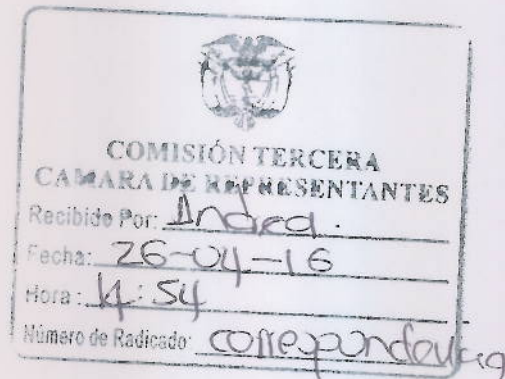 COMISIÓN TERCERA
CAMARA DE REPRESENTANTES
Recibido Por: Andrea.
Fecha: 26-04-16
Hora: 14:54
Número de Radicado: correspondencia